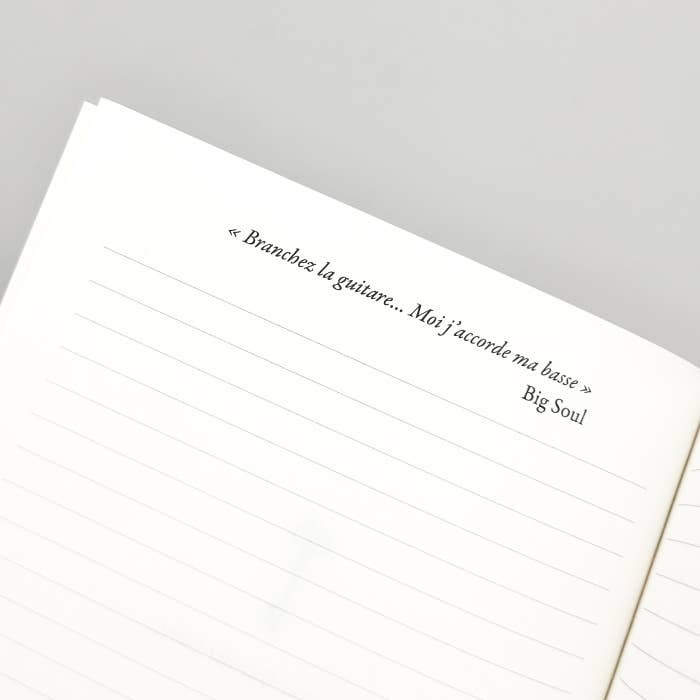 « Branchez la guitare... Moi j’accorde ma basse »
Big Soul